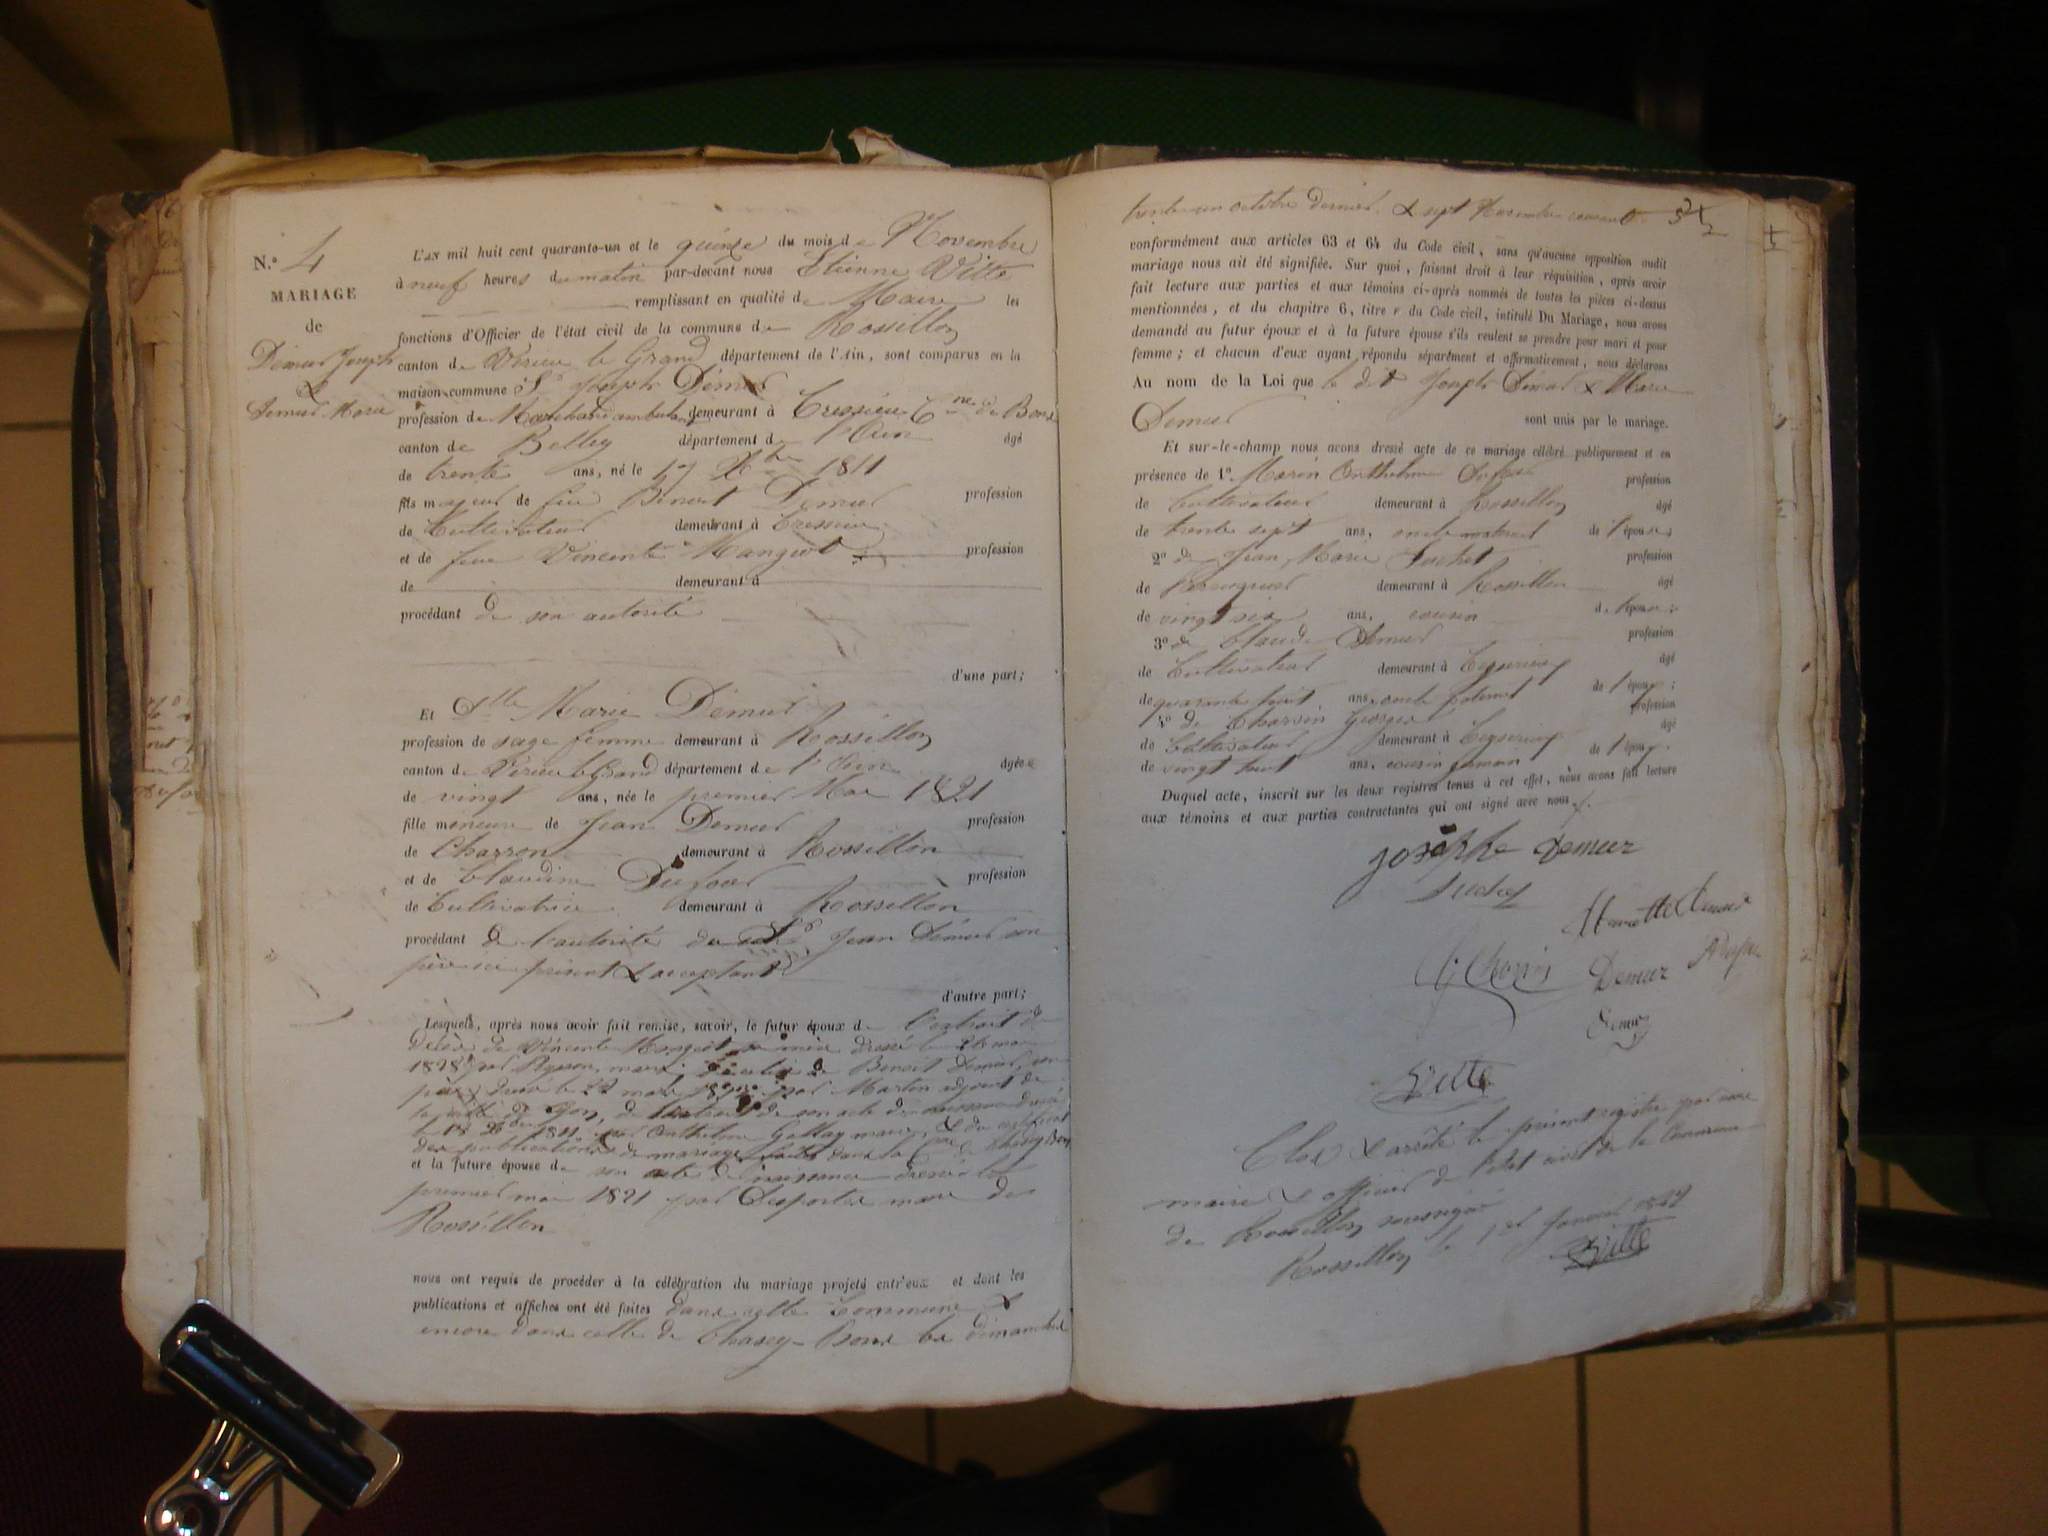 N.º 4
MARIAGE
de
Démeur Joseph
&
Demeur Marie
L'AN mil huit cent quarante-un et le quinze du mois de Novembre
à neuf heures du matin par-devant nous Etienne Vitte
remplissant en qualité de Maire les
fonctions d'Officier de l'état civil de la commune de Rossillon
canton de Virieu le Grand département de l'Ain, sont comparus en la
maison commune Sr Joseph Démeur
profession de Marchand ambulant demeurant à Cressieu Cne de Bons
canton de Belley département de l'Ain âgé
de trente ans, né le 17 Xbre 1811
fils majeur de feu Benoit Démeur profession
de Cultivateur demeurant à Cressieu
et de feue Vincente Mangeot profession
de demeurant à
procédant de son autorité
d'une part;
Et Dlle Marie Démeur
profession de sage femme demeurant à Rossillon
canton de Virieu le Grand département de l'Ain âgée
de vingt ans, née le premier Mai 1821
fille mineure de Jean Demeur profession
de Charron demeurant à Rossillon
et de Claudine Dufour profession
de Cultivatrice demeurant à Rossillon
procédant de l'autorité du Jean Démeur son
père ici présent & acceptant
d'autre part;
Lesquels, après nous avoir fait remise, savoir, le futur époux de l'extrait de
décès de Vincente Mangeot sa mère dressé le 26 mars
1828 par maire de Benoit Demeur, son
père dressé le 22 mars par Martin adjoint de
la ville de Lyon, de l'extrait de son acte de naissance dressé
le 18 Xbre 1811 par Anthelme Gallay maire, & du certificat
des publications de mariage faites dans la Cne de Chazey Bons
et la future épouse de son acte de naissance dressé le
premier mai 1821 par Desportes maire de
Rossillon
nous ont requis de procéder à la célébration du mariage projeté entr'eux et dont les
publications et affiches ont été faites dans cette Commune &
encore dans celle de Chazey-Bons les dimanches
trente-un octobre dernier & sept Novembre courant
conformément aux articles 63 et 64 du Code civil, sans qu'aucune opposition audit
mariage nous ait été signifiée. Sur quoi, faisant droit à leur réquisition, après avoir
fait lecture aux parties et aux témoins ci-après nommés de toutes les pièces ci-dessus
mentionnées, et du chapitre 6, titre v du Code civil, intitulé Du Mariage, nous avons
demandé au futur époux et à la future épouse s'ils veulent se prendre pour mari et pour
femme; et chacun d'eux ayant répondu séparément et affirmativement, nous déclarons
Au nom de la Loi que le dit Joseph Démeur & Marie
Demeur sont unis par le mariage.
Et sur-le-champ nous avons dressé acte de ce mariage célébré publiquement et en
présence de 1º Marin Anthelme Dufour profession
de Cultivateur demeurant à Rossillon âgé
de trente sept ans, oncle maternel de l'épouse
2º de Jean Marie Juchet profession
de Perruquier demeurant à Rossillon âgé
de vingt six ans, cousin de l'épouse;
3º de Claude Demeur profession
de Cultivateur demeurant à Ceyzerieu âgé
de quarante huit ans, oncle paternel de l'époux;
4º de Charvin Georges profession
de Cultivateur demeurant à Ceyzerieu âgé
de vingt huit ans, cousin germain de l'époux.
Duquel acte, inscrit sur les deux registres tenus à cet effet, nous avons fait lecture
aux témoins et aux parties contractantes qui ont signé avec nous.
Josephe Demeur
Juchet
Demeur
Demeur
Vitte
Clos & arrêté le présent registre par nous
maire & officier de l'état civil de la Commune
de Rossillon soussigné
Rossillon le 1er Janvier 1842
Vitte